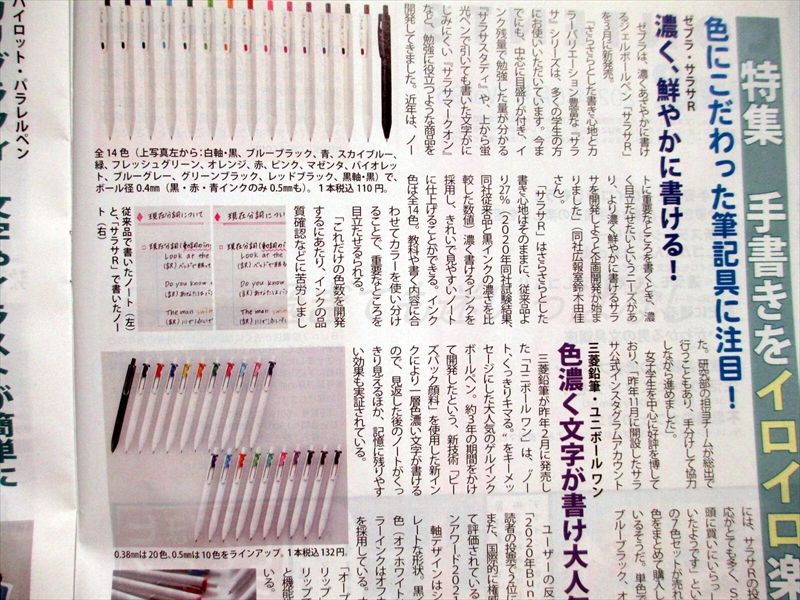 特集 手書きをイロイロ楽
色にこだわった筆記具に注目！
ゼブラ・サラサR
濃く、鮮やかに書ける！
ゼブラは、濃くあざやかに書け
るジェルボールペン「サラサR」
を3月に新発売。
「さらさらとした書き心地とカ
ラーバリエーション豊富な『サラ
サ』シリーズは、多くの学生の方
にお使いいただいています。今ま
でにも、中芯に目盛りが付き、イ
ンク残量で勉強した量が分かる
『サラサスタディ』や、上から蛍
光ペンで引いても書いた文字がに
じみにくい『サラサマークオン』
など、勉強に役立つような商品を
開発してきました。近年は、ノー
トに重要なところを書くとき、濃
く目立たせたいというニーズがあ
り、より濃く鮮やかに書けるサラ
サを開発しようと企画開発が始ま
りました」（同社広報室鈴木由佳
さん）。
「サラサR」はさらさらとした
書き心地はそのままに、従来品よ
り27％（2020年同社試験結果、
同社従来品と黒インクの濃さを比
較した数値）濃く書けるインクを
採用し、きれいで見やすいノート
に仕上げることができる。インク
色は全14色。教科や書く内容に合
わせてカラーを使い分け
ることで、重要なところを
目立たせるられる。
「これだけの色数を開発
するにあたり、インクの品
質確認などに苦労しまし
た。研究部の担当チームが総出で
行うこともあり、手分けして協力
しながら進めました」。
女子学生を中心に好評を博して
おり、「昨年11月に開設したサラ
サ公式インスタグラムアカウント
には、サラサRの投
応がとても多く、S
頭に買いにいらっし
いたようです」とい
の7色セットが売れ
色をまとめて購入し
いるそうだ。単色で
ブルーブラック、オ
全14色（上写真左から：白軸・黒、ブルーブラック、青、スカイブルー、
緑、フレッシュグリーン、オレンジ、赤、ピンク、マゼンタ、バイオレッ
ト、ブルーグレー、グリーンブラック、レッドブラック、黒軸・黒）で、
ボール径0.4mm（黒・赤・青インクのみ0.5mも）。1本税込110円。
現在分詞について
Look at the
Do you know
The man swim
現在分詞について
Look at the
Do you know
The man swim
従来品で書いたノート（左）
と、「サラサR」で書いたノー
ト（右）
三菱鉛筆・ユニボール ワン
色濃く文字が書け大人気
三菱鉛筆が昨年2月に発売し
た「ユニボール ワン」は、“ノー
ト、くっきりキマる。”をキーメッ
セージにした大人気のゲルインク
ボールペン。約3年の期間をかけ
て開発したという、新技術「ビー
ズパック顔料」を使用した新イン
クにより一層色濃い文字が書ける
ので、見返した後のノートがくっ
きり見えるほか、記憶に残りやす
い効果も実証されている。
ユーザーの反
「2020年Bun
読者の投票で2位に
また、国際的に権威
ンアワード2021
て評価されている。
軸デザインはシ
レートな形状。黒
色（オフホワイト
ラーインクはオフ
を採用している。オ
0.38mmは20色、0.5mmは10色をラインアップ。1本税込132円。
パイロット・パラレルペン